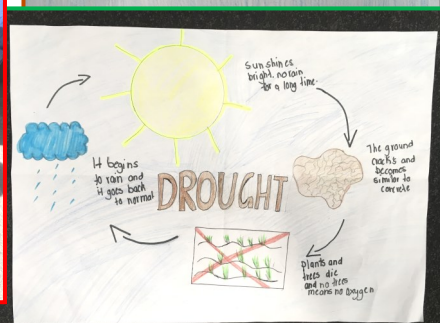 Sun shines
bright, no rain
for a long time.
The ground
cracks and
becomes
similar to
concrete
plants and
trees die
and no trees
means no oxygen
It begins
to rain and
it goes back
to normal
DROUGHT